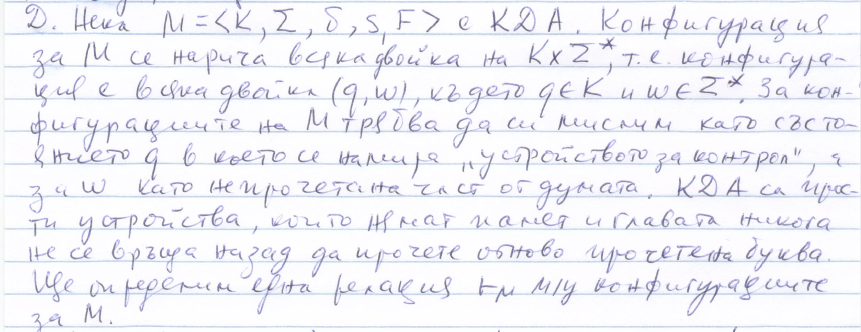 Д. Нека M = <K, Σ, δ, s, F> е КДА. Конфигурация
за M се нарича всяка двойка на K x Σ*, т.е. конфигура-
ция е всяка двойка (q, w), където q ∈ K и w ∈ Σ*. За кон-
фигурациите на M трябва да си мислим като състо-
янието q в което се намира „устройството за контрол", а
за w като непрочетена част от думата. КДА са прос-
ти устройства, които нямат памет и главата никога
не се връща назад да прочете отново прочетена буква.
Ще определим една релация ⊢м м/у конфигурациите
за M.